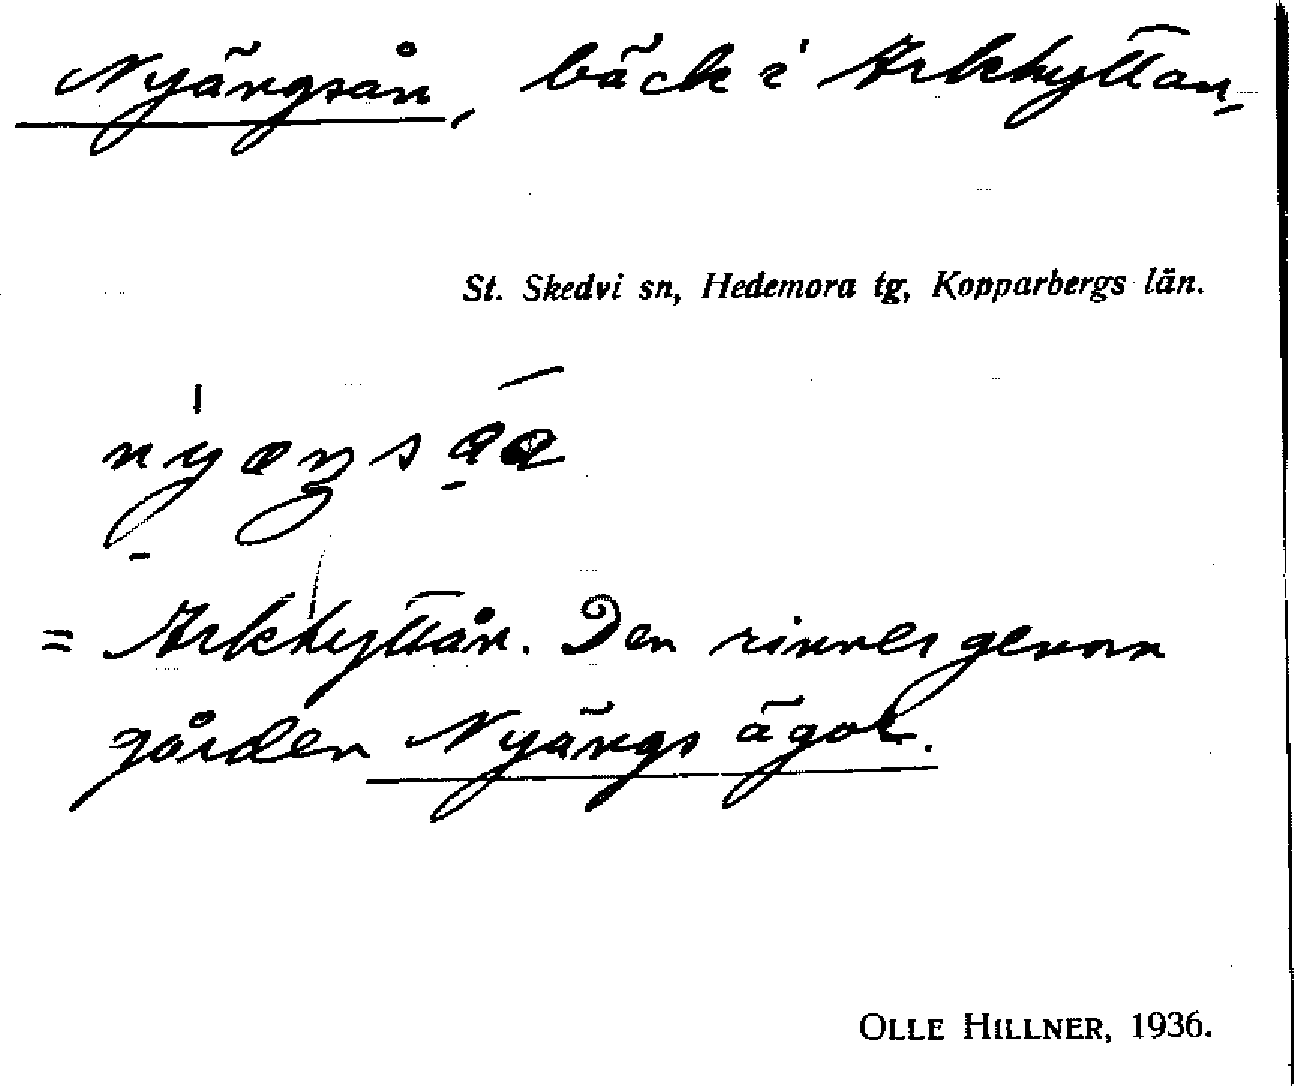 Nyängsån, bäck i Arkhyttan
St. Skedvi sn, Hedemora tg, Kopparbergs län.
= Arkhyttån. Den rinner genom
gården Nyängs ägor.
OLLE HILLNER, 1936.